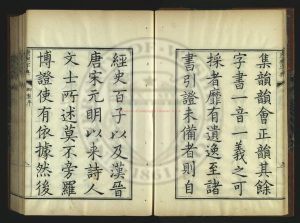 集韻韻會正韻其餘
字書一音一義之可
採者靡有遺逸至諸
書引證未備者則自
經史百子以及漢晉
唐宋元明以來詩人
文士所述莫不旁羅
博證使有依據然後